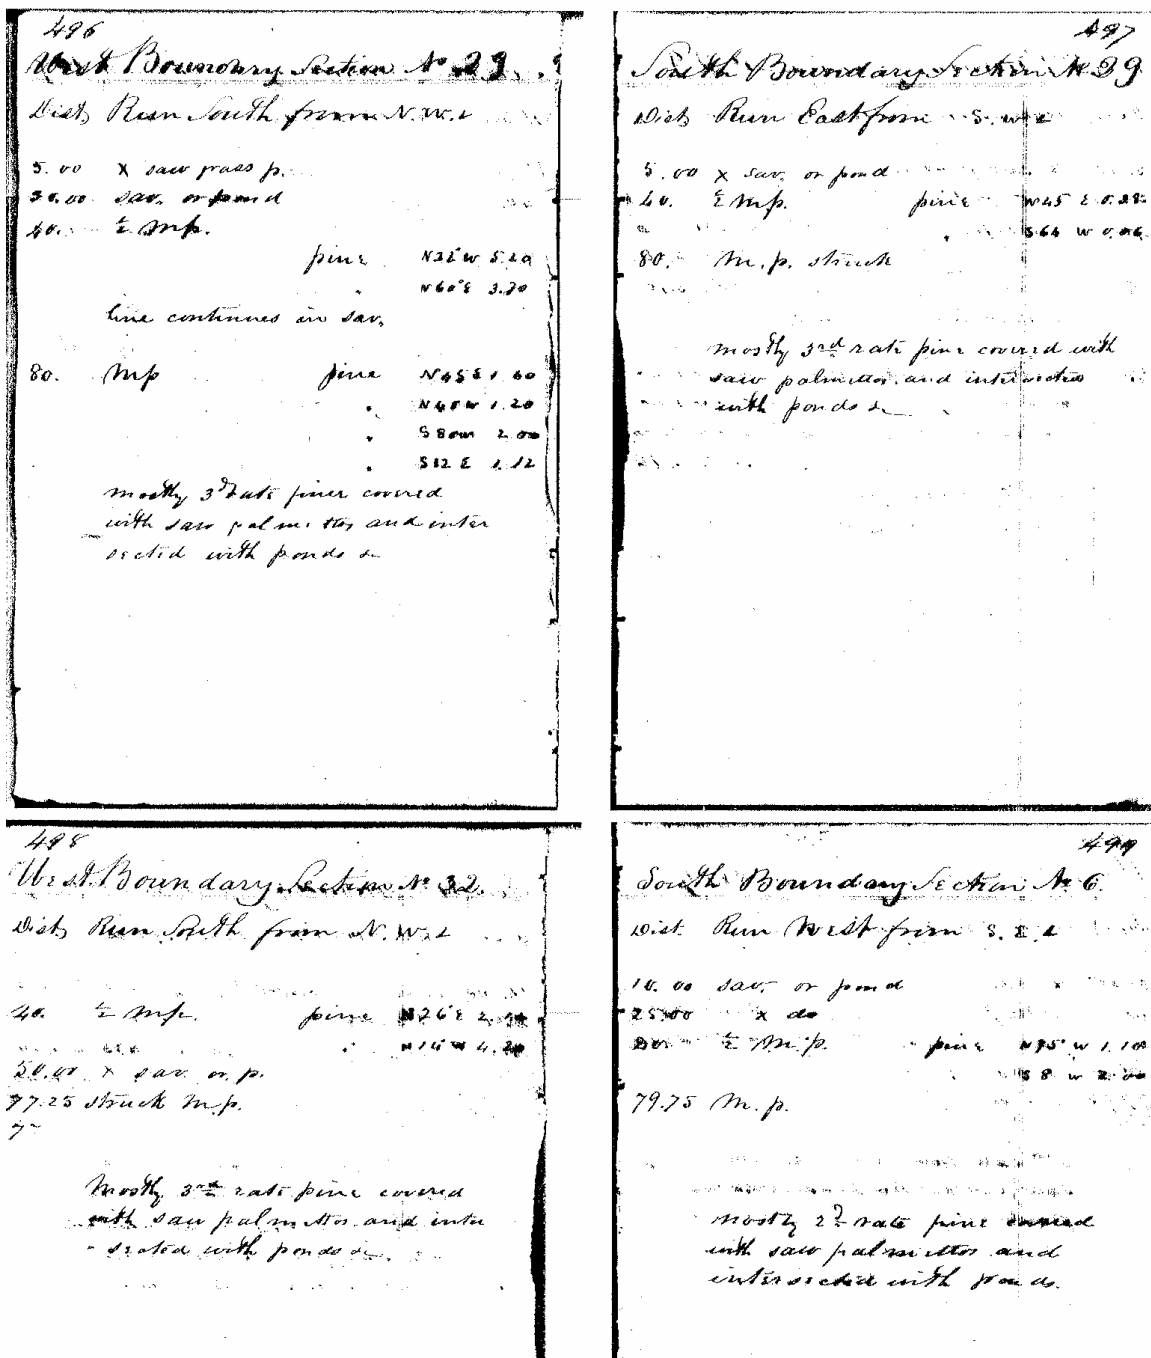 496
West Boundary Section No 29.
Dist Run South from N.W.c
5.00 x saw grass p.
30.00 sav. or pond
40. ½ Mp.
pine N32W 5.20
" N60E 3.70
line continues in sav.
80. Mp pine N45E 1.60
" N40W 1.20
" S80W 2.00
" S12E 1.12
mostly 3d rate pine covered
with saw palmettos and inter
sected with ponds &c
497
South Boundary Section No 29
Dist Run East from S.W.c
5.00 x sav. or pond
40. ½ Mp. pine N45E 0.28
S64W
80. M.p. struck
mostly 3rd rate pine covered with
saw palmettos and intersected
with ponds &c
498
West Boundary Section No 32.
Dist Run South from N.W.c
40. ½ Mp. pine N26E
" N14W
50.00 x sav. or p.
77.25 struck M.p.
Mostly 3rd rate pine covered
with saw palmettos and inter
sected with ponds &c
499
South Boundary Section No 6.
Dist. Run West from S.E.c
10.00 sav. or pond
25.00 x do
½ M.p. pine N75W 1.10
S8W 2.00
79.75 M.p.
mostly 2d rate pine covered
with saw palmettos and
intersected with ponds.